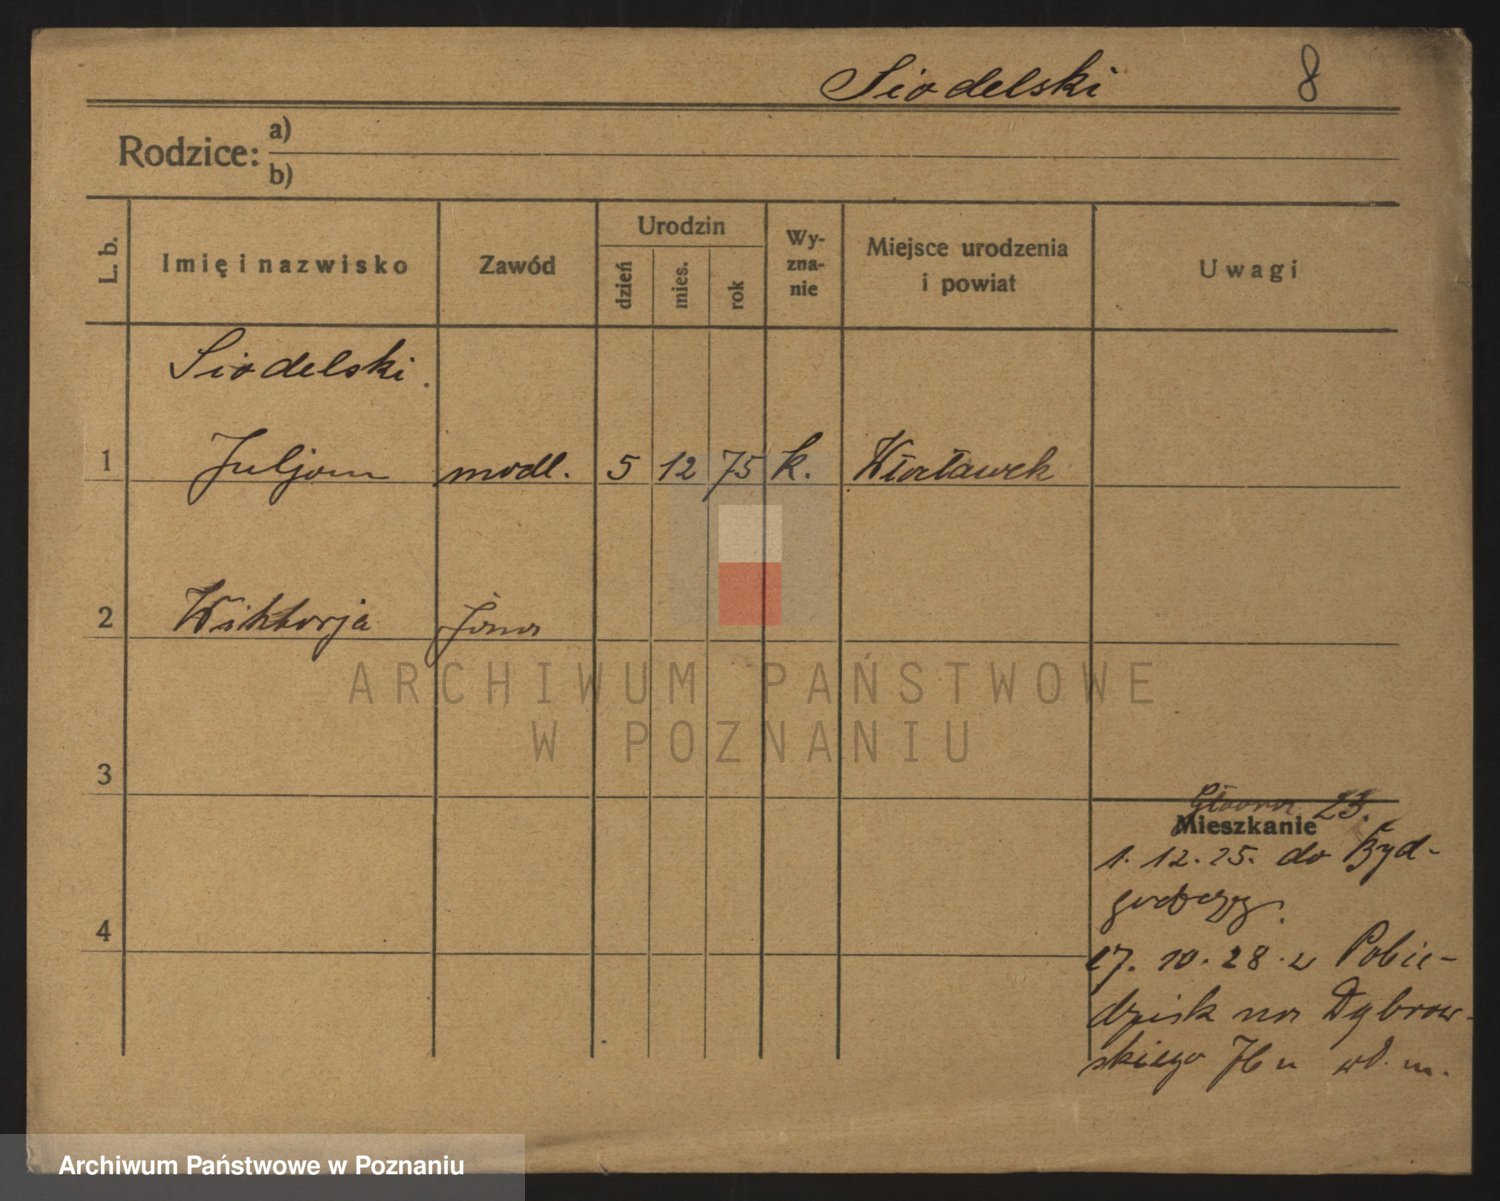 Siodelski 8
Rodzice: a)
b)
L. b. Imię i nazwisko Zawód Urodzin dzień mies. rok Wy-zna-nie Miejsce urodzenia i powiat Uwagi
Siodelski.
1 Juljan modl. 5 12 75 k. Włocławek
2 Wiktorja żona
ARCHIWUM PAŃSTWOWE
W POZNANIU
3
Główna 23.
Mieszkanie
1. 12. 25. do Byd-
goszczy.
4
27. 10. 28. z Pobie-
dzisk na Dąbrow-
skiego
Archiwum Państwowe w Poznaniu